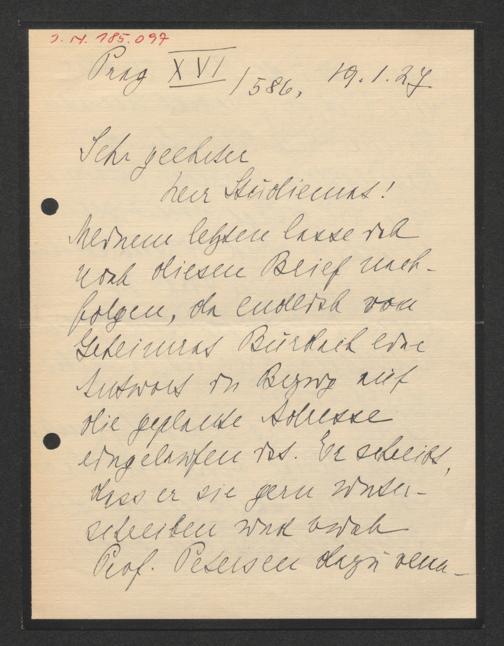 J.N. 185.097
Prag XVI/586, 19.1.27
Sehr geehrter
Herr Studienrat!
Meinem letzten lasse ich
noch diesen Brief nach-
folgen, da endlich von
Geheimrat Burdach eine
Antwort in Bezug auf
die geplante Adresse
eingelaufen ist. Er schreibt,
dass er sie gern unter-
schreiben und auch
Prof. Petersen dazu veran-